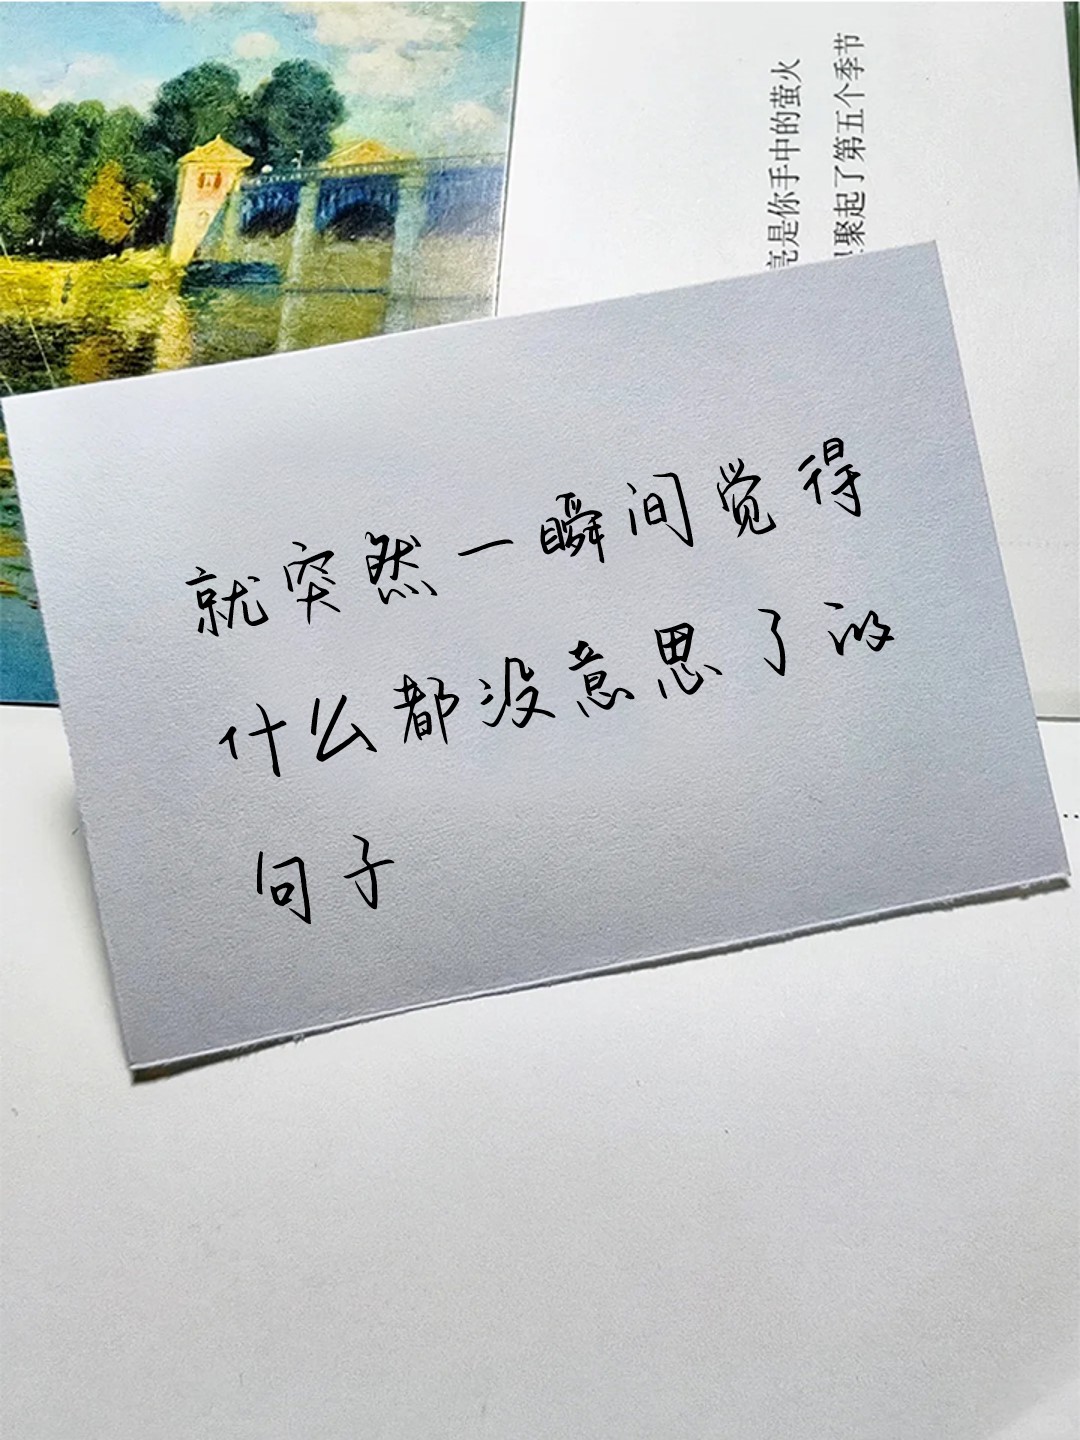 亮是你手中的萤火
聚起了第五个季节
就突然一瞬间觉得
什么都没意思了的
句子